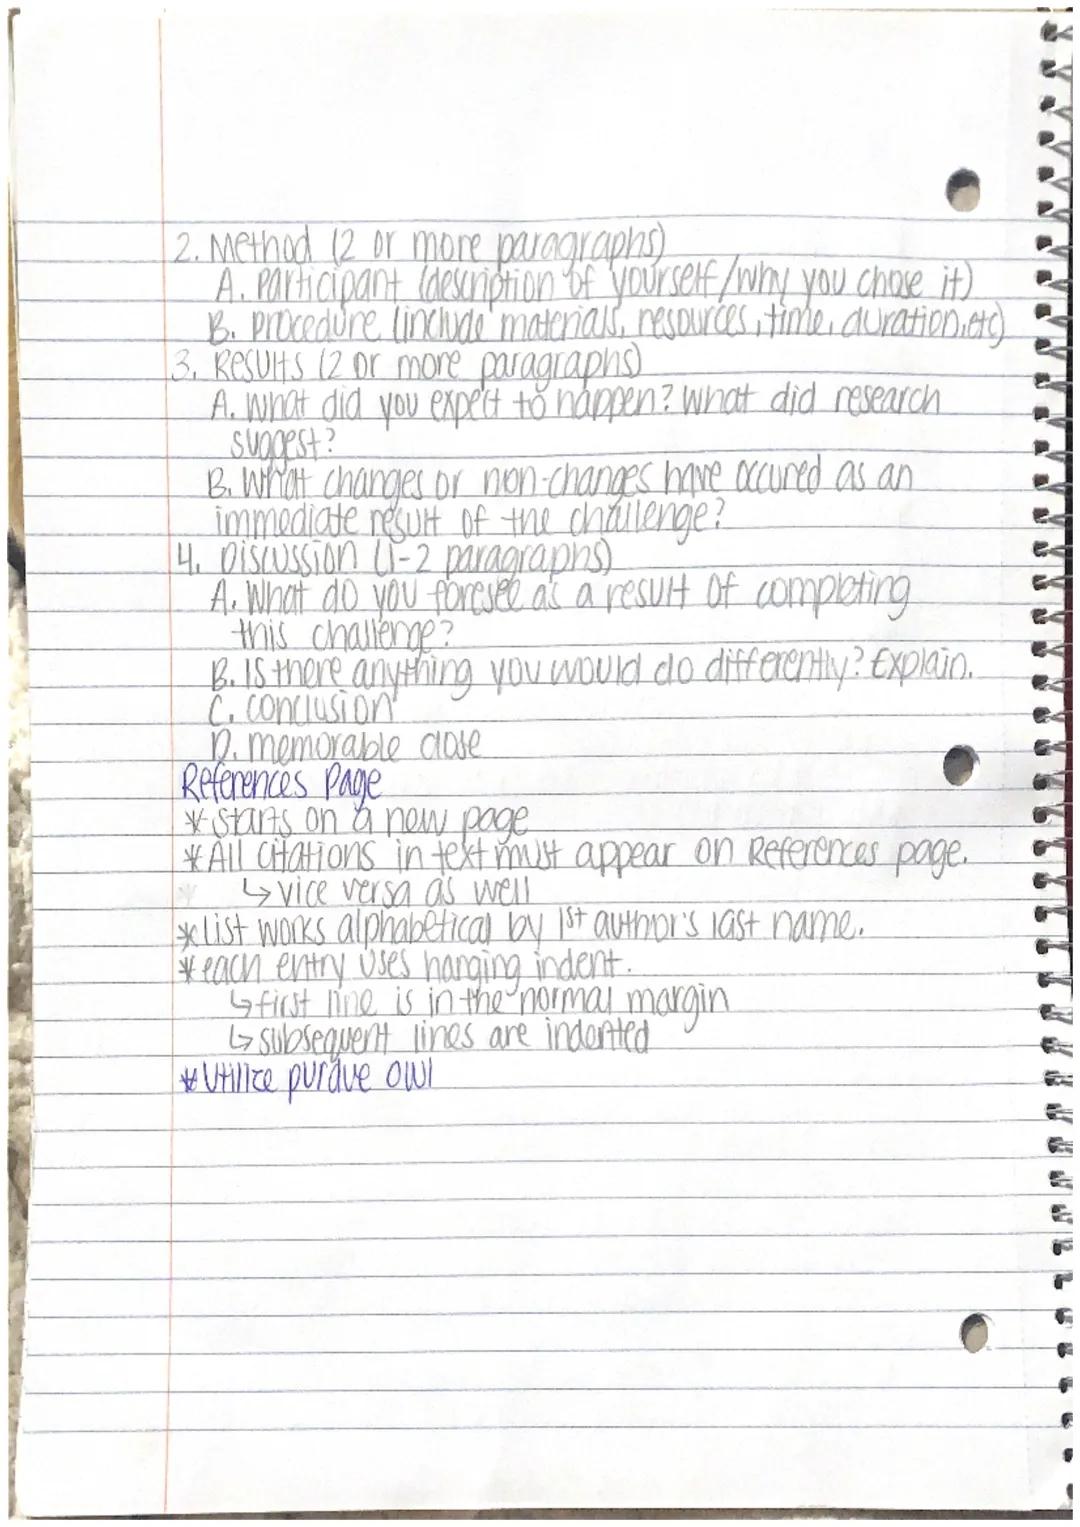 2. Method (2 or more paragraphs)
A. Participant (description of yourself/why you chose it)
B. procedure (include materials, resources, time, duration, etc)
3. Results (2 or more paragraphs)
A. What did you expect to happen? What did research
suggest?
B. What changes or non-changes have occured as an
immediate result of the challenge?
4. Discussion (1-2 paragraphs)
A. What do you foresee as a result of completing
this challenge?
B. Is there anything you would do differently? Explain.
C. Conclusion
D. memorable close
References Page
* starts on a new page
* All citations in text must appear on References page.
↳ vice versa as well
* list works alphabetical by 1st author's last name.
* each entry uses hanging indent.
↳ first line is in the normal margin
↳ subsequent lines are indented
* Utilize purdue owl